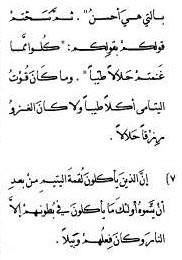 بالتي هي أحسن". ثم سخّتم
قولكم بقولكم: "كلوا مما
غنمتم حلالاً طيباً". وما كان قوت
اليتامى أكلاً طيباً ولا كان الغزو
رزقاً حلالاً.
٧) إن الذين يأكلون لقمة اليتيم من بعد
أن يتّموه أولئك ما يأكلون في بطونهم إلاّ
النار وكان فعلهم وبيلاً.